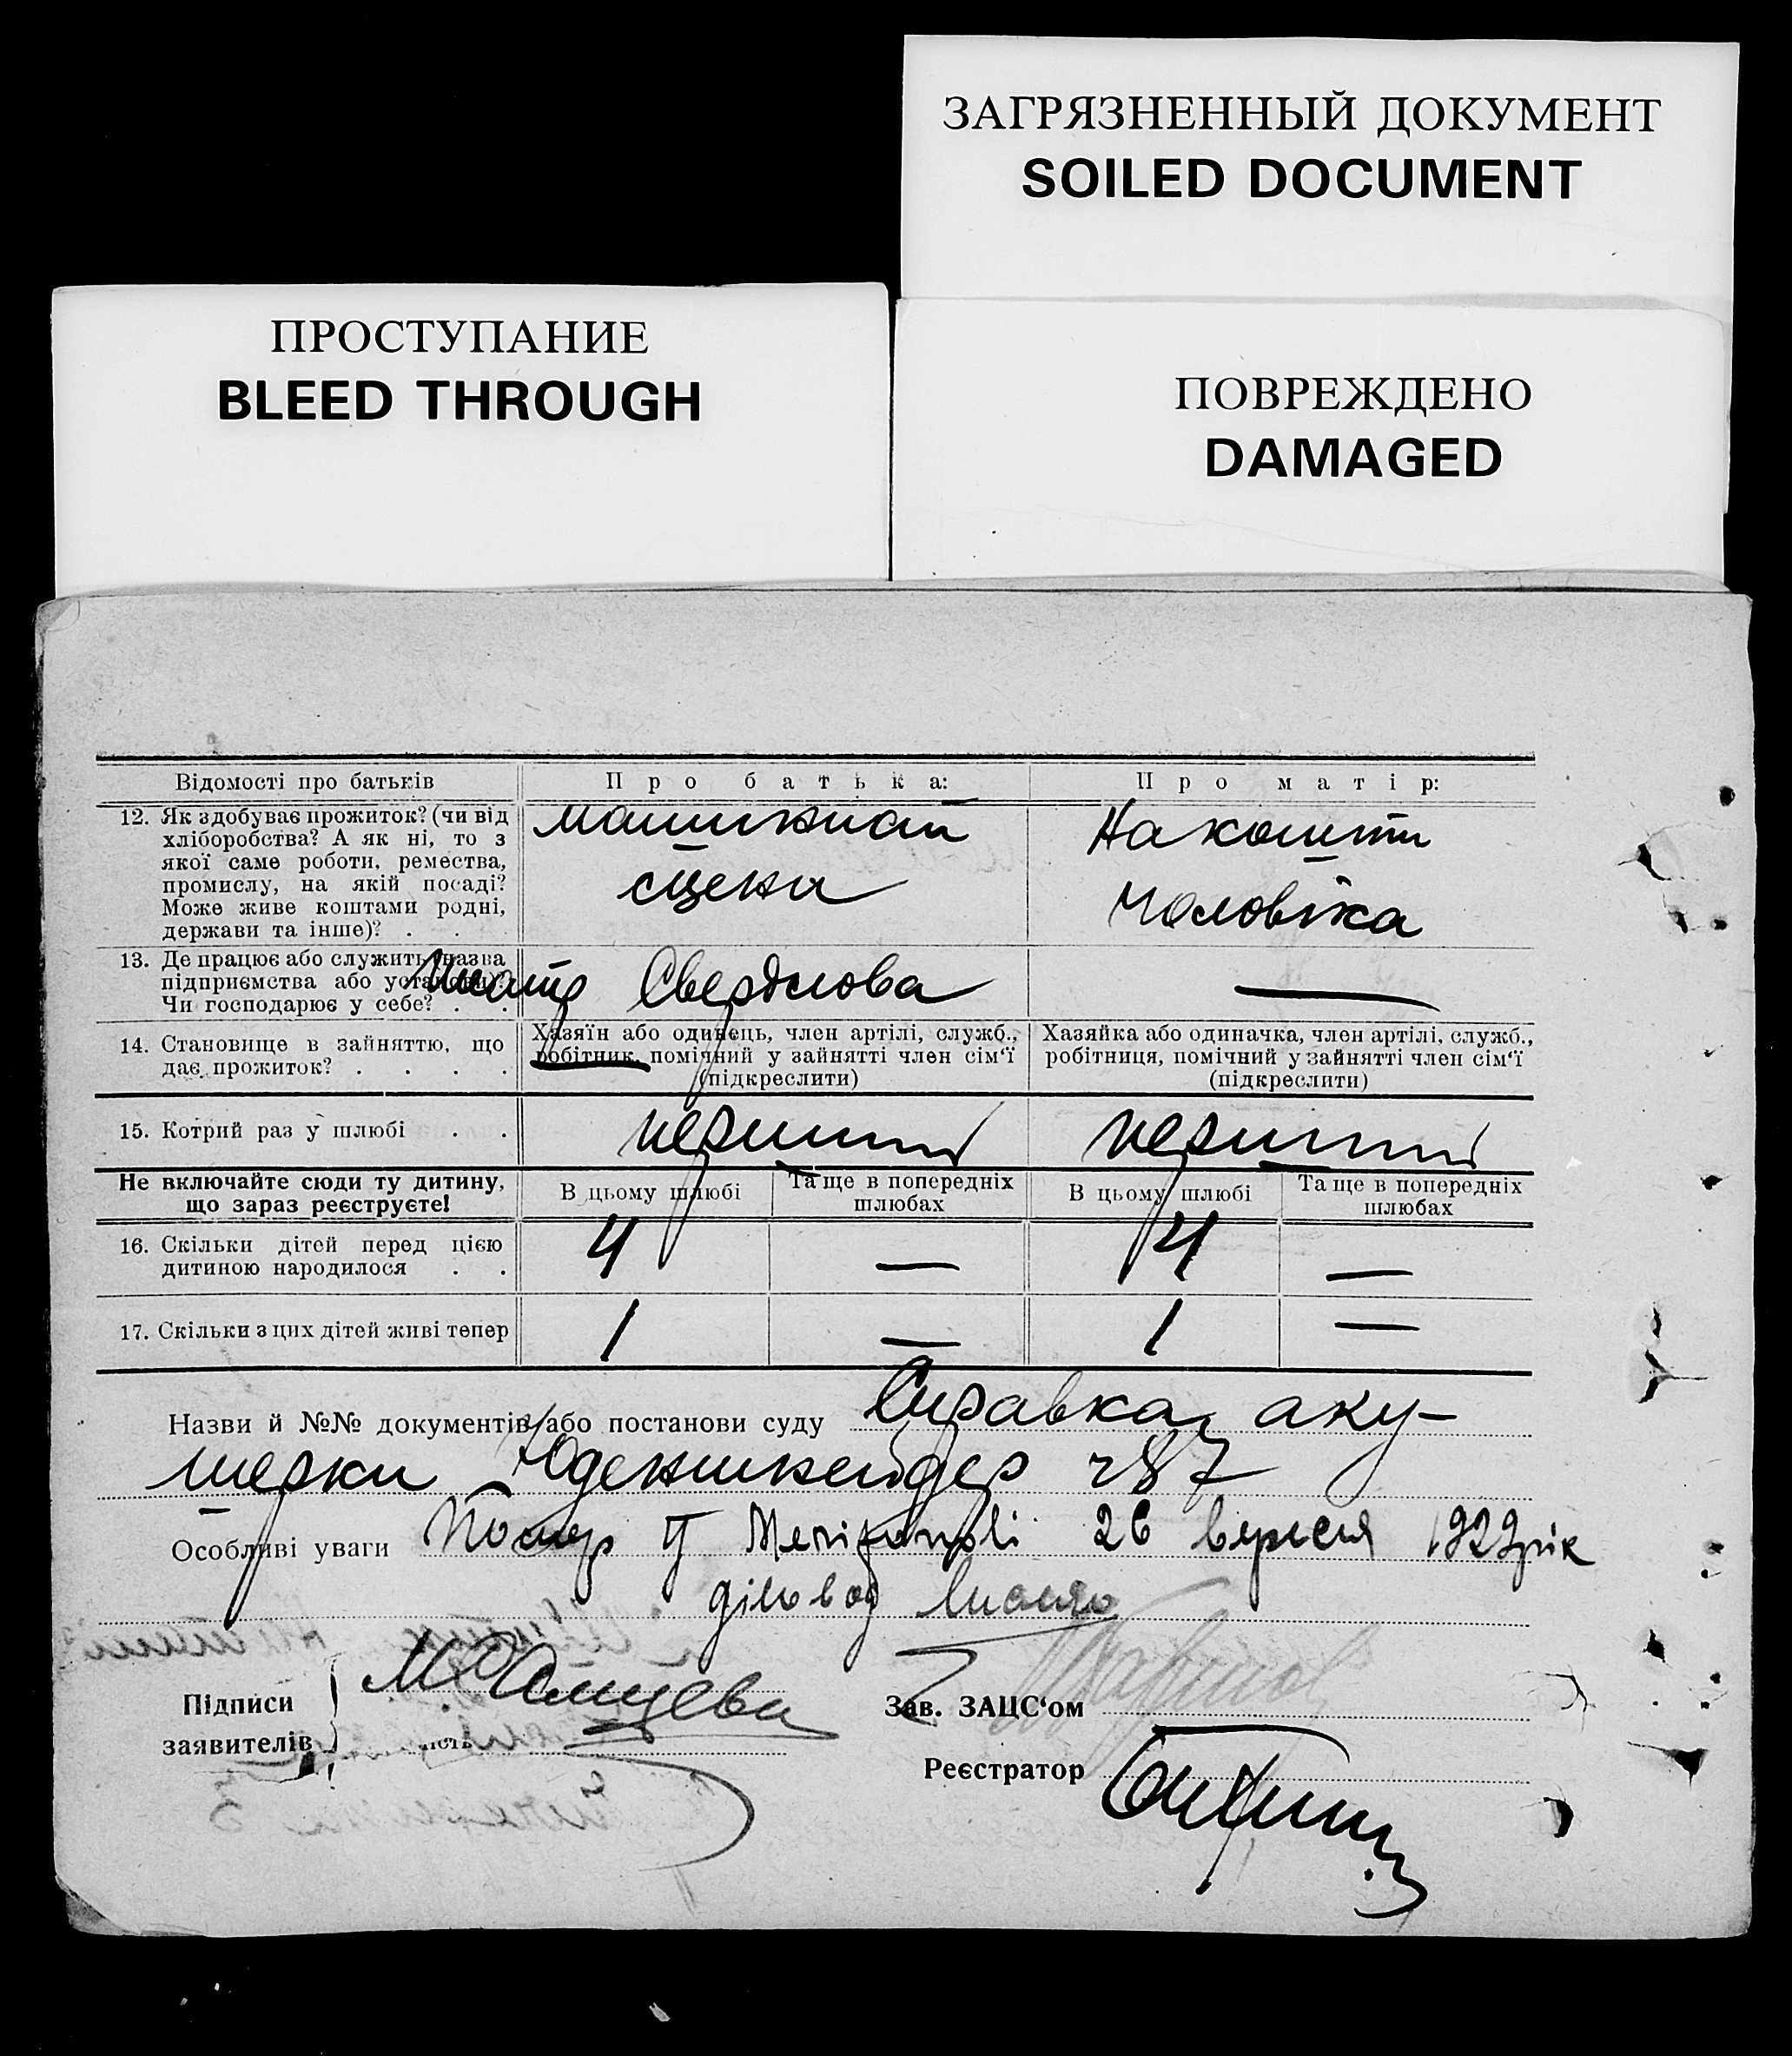 ЗАГРЯЗНЕННЫЙ ДОКУМЕНТ
SOILED DOCUMENT
ПРОСТУПАНИЕ
BLEED THROUGH
ПОВРЕЖДЕНО
DAMAGED
Відомості про батьків
Про батька:
Про матір:
12. Як здобуває прожиток? (чи від
хліборобства? А як ні, то з
якої саме роботи, ремества,
промислу, на якій посаді?
Може живе коштами родні,
держави та інше)? . .
сцени
На кошти
чоловіка
13. Де працює або служить (назва
підприємства або установи)?
Чи господарює у себе? . .
Свердлова
—
14. Становище в зайняттю, що
дає прожиток? . . . .
Хазяїн або одинець, член артілі, служб.,
робітник, помічний у зайнятті член сім'ї
(підкреслити)
Хазяйка або одиначка, член артілі, служб.,
робітниця, помічний у зайнятті член сім'ї
(підкреслити)
15. Котрий раз у шлюбі . .
перший
перший
Не включайте сюди ту дитину,
що зараз реєструєте!
В цьому шлюбі
Та ще в попередніх
шлюбах
В цьому шлюбі
Та ще в попередніх
шлюбах
16. Скільки дітей перед цією
дитиною народилося . .
4
—
4
—
17. Скільки з цих дітей живі тепер
1
—
1
—
Назви й №№ документів або постанови суду Справка аку-
шерки ч 87
Особливі уваги 26 вересня рік
діловод
Підписи
заявителів
Зав. ЗАЦС'ом
Реєстратор